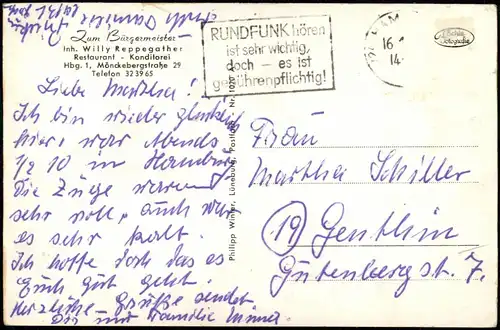 Zum Bürgermeister
Inh. Willy Reppegather
Restaurant - Konditorei
Hbg. 1, Mönckebergstraße 29
Telefon 32 39 65
RUNDFUNK hören
ist sehr wichtig,
doch - es ist
gebührenpflichtig!
16
14
Echte
Fotografie
Philipp Winter, Lüneburg, Postfach, Nr. 1020
Liebe Martha!
Ich bin wieder glücklich
hier, war Abends
1/2 10 in Hamburg
Die Züge waren
sehr voll, auch war
es sehr kalt.
Ich hoffe doch das es
Euch gut geht.
Herzliche Grüße sendet
Dir und Familie
Frau
Martha Schiller
(19) Genthin
Gutenbergst. 7.